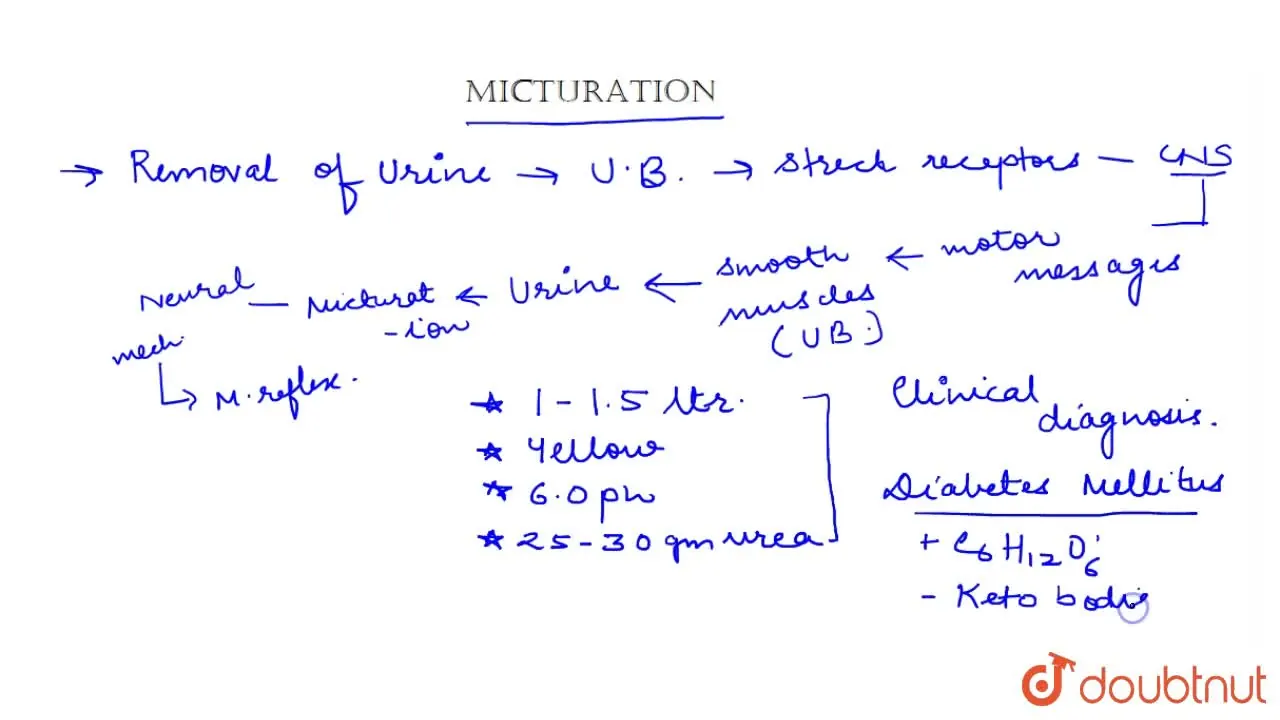 MICTURATION
→ Removal of Urine → U.B. → Streck receptors — CNS
motor messages
← smooth muscles (UB.)
← Urine
← Micturat-ion
— Neural mech.
↳ M. reflex.
★ 1-1.5 ltr.
★ Yellow
★ 6.0 pH
★ 25-30 gm urea
Clinical diagnosis.
Diabetes Mellitus
+ C6H12O6
- Keto bodie
doubtnut